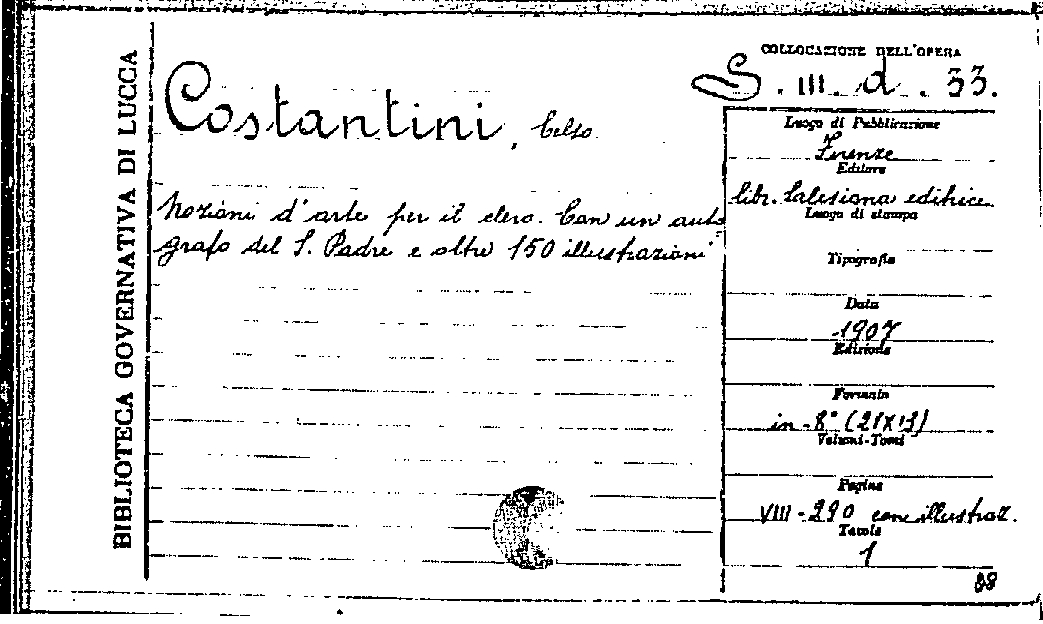 BIBLIOTECA GOVERNATIVA DI LUCCA
COLLOCAZIONE DELL'OPERA
S. III. d. 33.
Costantini, Celso
Nozioni d'arte per il clero. Con un auto
grafo del S. Padre e oltre 150 illustrazioni
Luogo di Pubblicazione
Firenze
Editore
libr. Salesiana editrice
Luogo di stampa
Tipografia
Data
1907
Edizione
Formato
in-8° (21X13)
Volumi-Tomi
Pagine
VIII-290 con illustraz.
Tavole
1